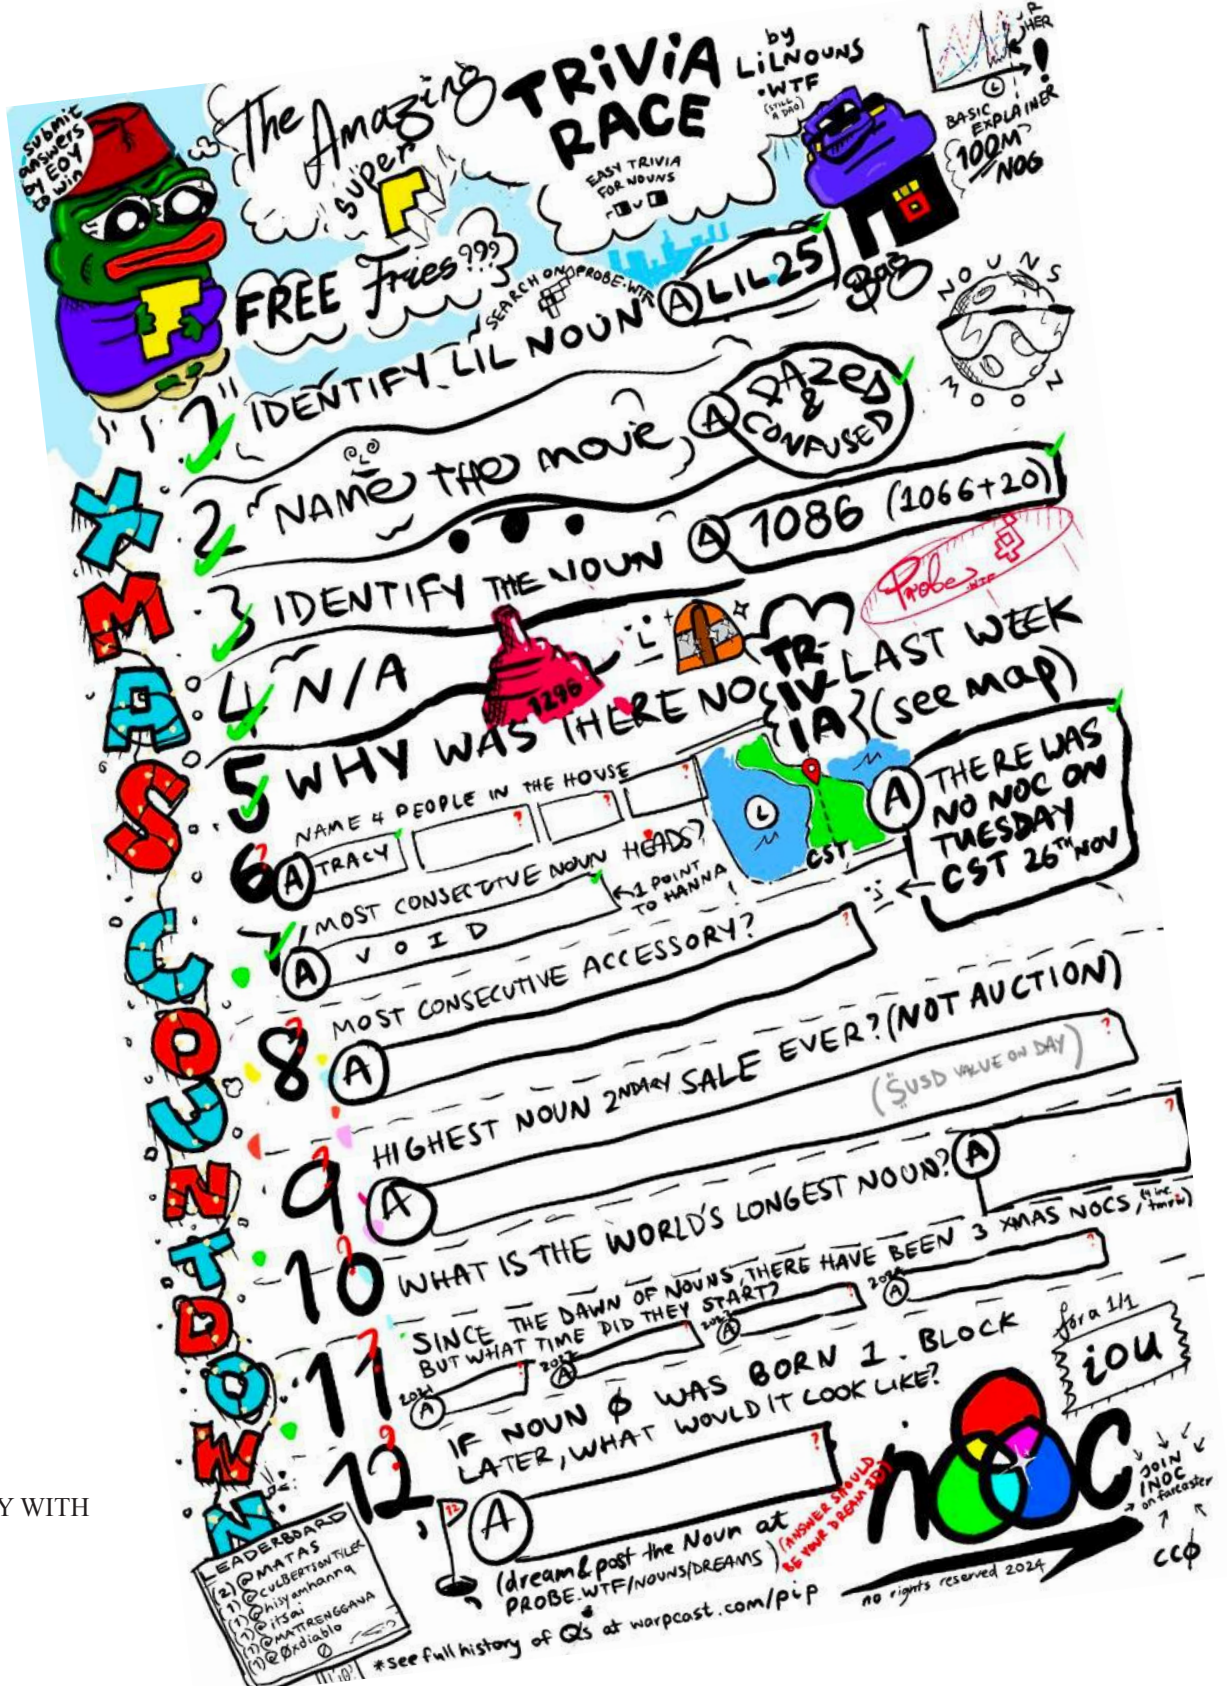 submit
answers
by EOY
to win
The Amazing
SUPER
TRIVIA
RACE
EASY TRIVIA
FOR NOUNS
by
LILNOUNS
.WTF
(STILL
A DAO)
BASIC
EXPLAINER
100M
NOG
FREE Fries???
SEARCH ON PROBE.WTF
Bag
NOUNS
MOON
XMAS COUNTDOWN
1 IDENTIFY LIL NOUN A LIL 25
2 NAME THE MOVIE, A DAZED
&
CONFUSED
3 IDENTIFY THE NOUN A 1086 (1066+20)
Probe.WTF
4 N/A
1296
5 WHY WAS THERE NO TRIVIA LAST WEEK
(see map)
L
CST
A THERE WAS
NO NOC ON
TUESDAY
CST 26TH NOV
NAME 4 PEOPLE IN THE HOUSE
6 A TRACY
7 MOST CONSECUTIVE NOUN HEADS?
A VOID
1 POINT
TO HANNA!
8 MOST CONSECUTIVE ACCESSORY?
A
9 HIGHEST NOUN 2NDARY SALE EVER? (NOT AUCTION)
A
($USD VALUE ON DAY)
10 WHAT IS THE WORLD'S LONGEST NOUN? A
11 SINCE THE DAWN OF NOUNS, THERE HAVE BEEN 3 XMAS NOCS, (4 inc. tmrw)
BUT WHAT TIME DID THEY START?
2021 A
2022 A
2023 A
2024 A
12 IF NOUN Ø WAS BORN 1. BLOCK
LATER, WHAT WOULD IT LOOK LIKE?
A
for a 1/1
iou
12
(dream & post the Noun at
PROBE.WTF/NOUNS/DREAMS)
(ANSWER SHOULD
BE YOUR DREAM ID)
nOC
JOIN
/NOC
on farcaster
CCØ
no rights reserved 2024
*see full history of Q's at warpcast.com/pip
Y WITH
LEADERBOARD
(2) @MATAS
(1) @CULBERTSONTYLER
(1) @hisyamhanna
(1) @itsai
(1) @MATTRENGGANA
(1) @0xdiablo